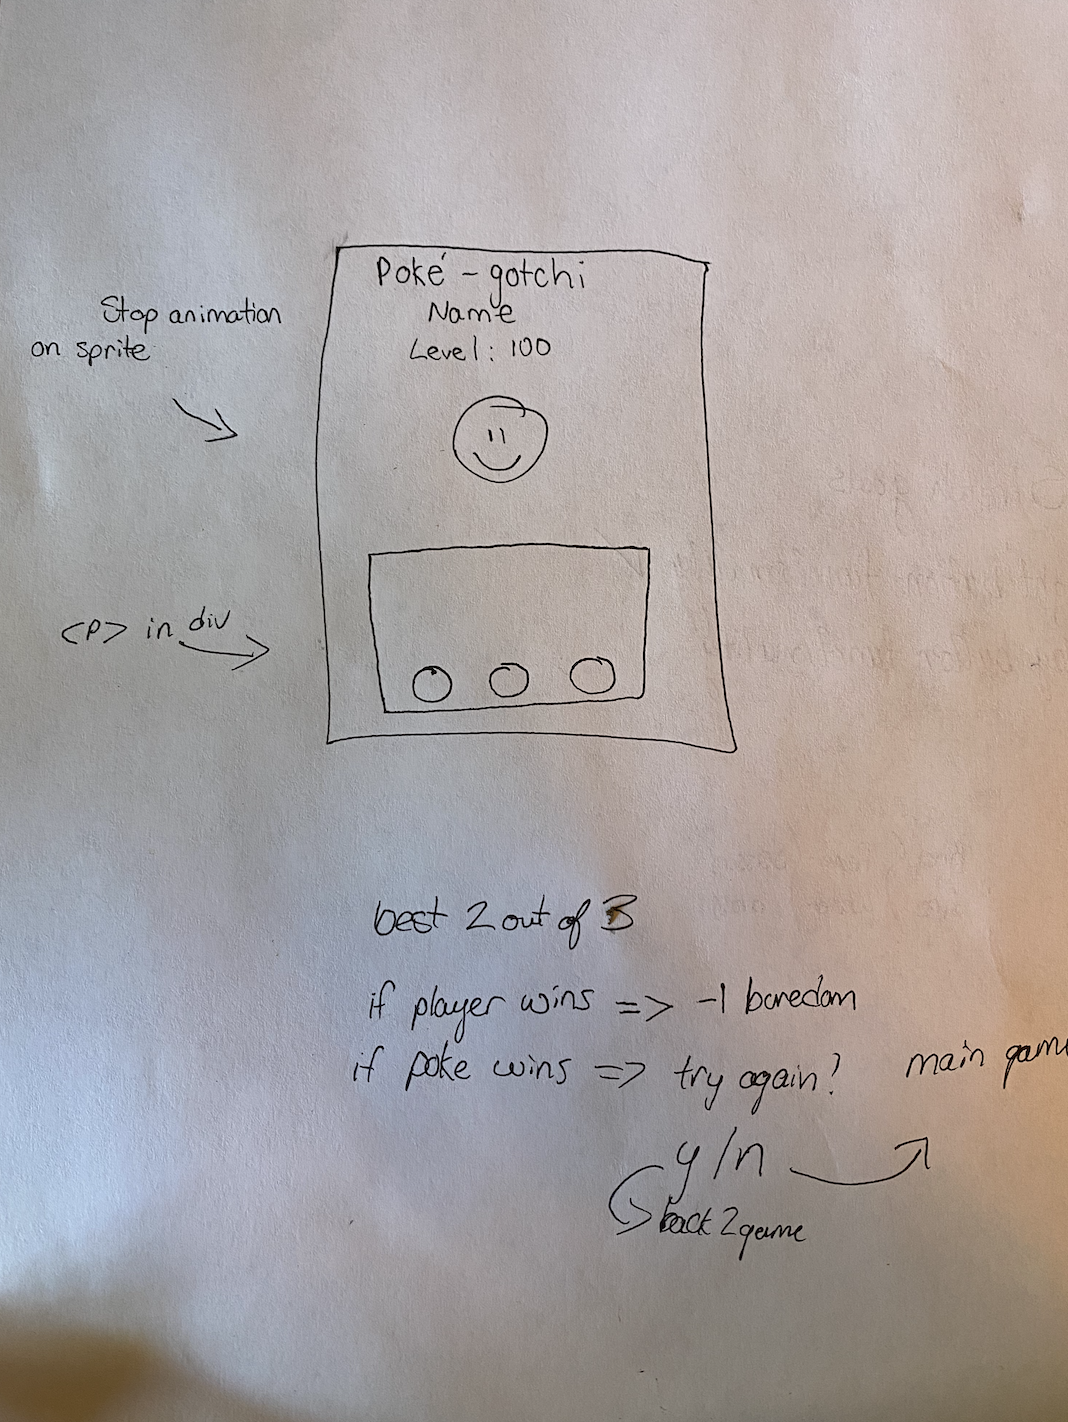 Poké - gotchi
Name
Level: 100
Stop animation
on sprite
<P> in div
best 2 out of 3
if player wins => -1 boredom
if poke wins => try again? main game
y/n
back 2 game